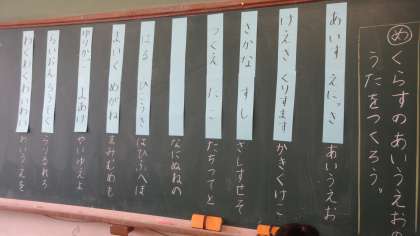 め
くらすのあいうえおの
うたをつくろう。
あいす えにっき
あいうえお
けえき くりすます
かきくけこ
さかな すし
さしすせそ
つくえ たこ
たちつてと
なにぬねの
はる ひこうき
はひふへほ
めがね
まみむめも
よあけ
やいゆえよ
らりるれろ
わくわくわいわい
わいうえを